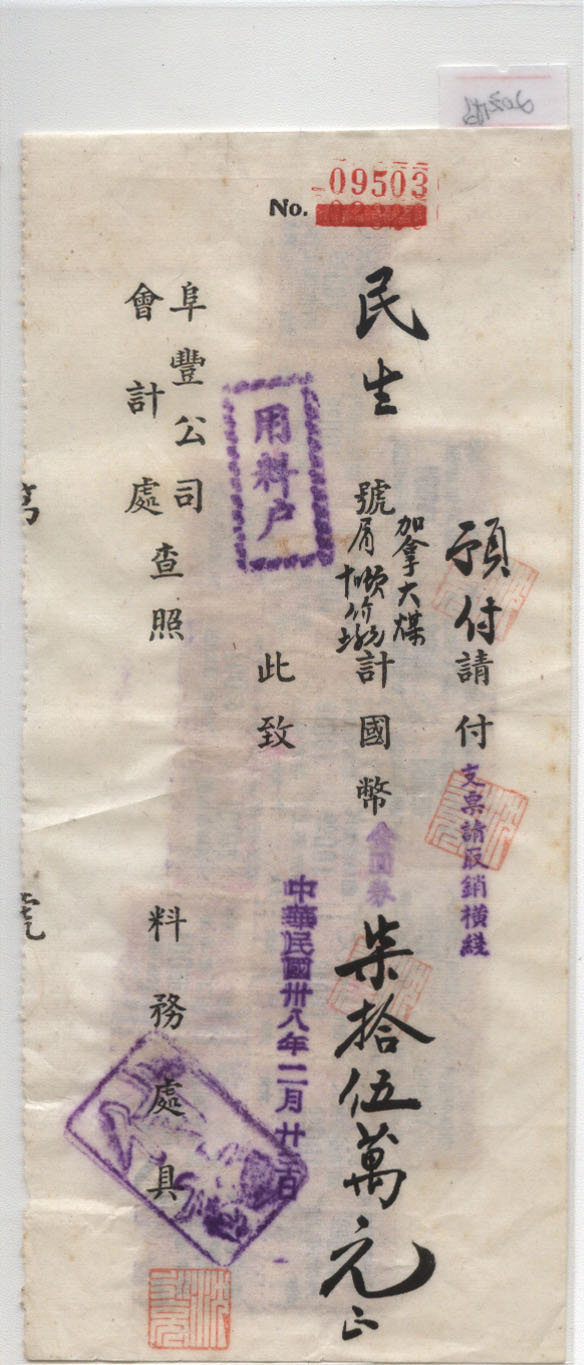 No. 09503
預付請付
支票請取銷橫綫
民生號
加拿大煤
屑
計國幣
金圓券
柒拾伍萬元正
此致
用料戶
中華民國卅八年二月廿
日
阜豐公司
會計處查照
料務處具